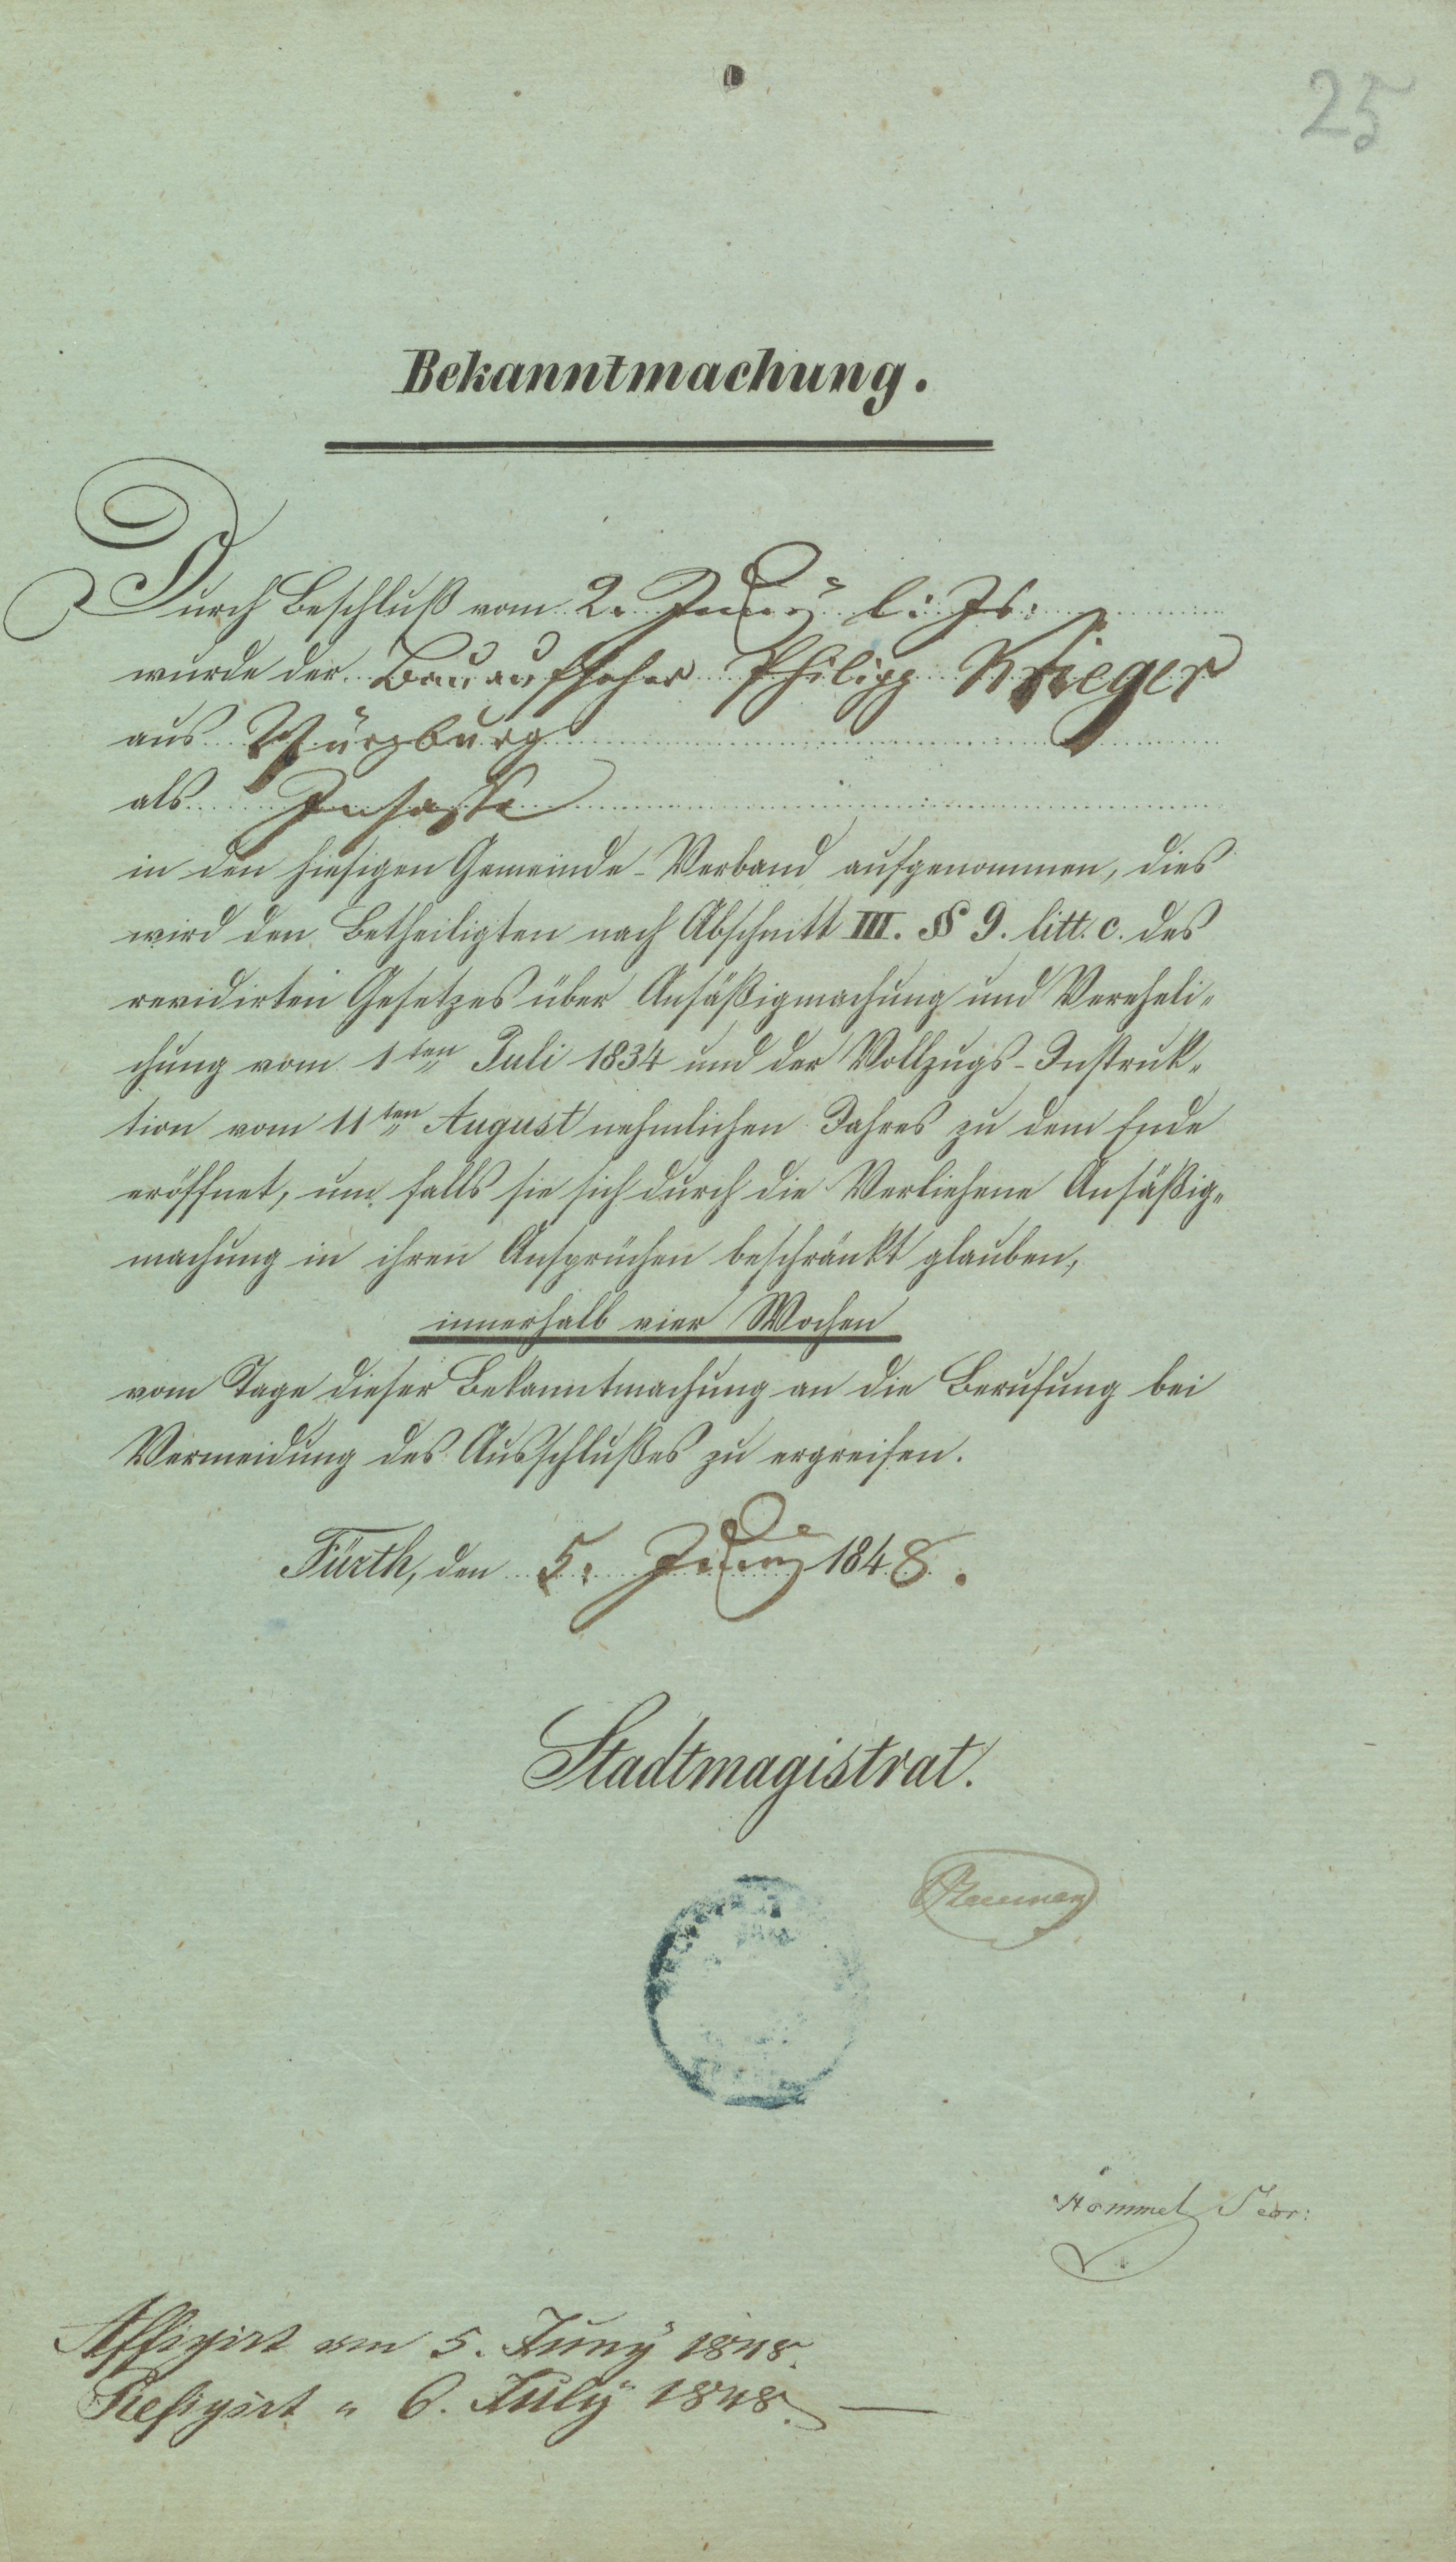 25
Bekanntmachung.
Durch Beschluß vom 2. Juny l: Js:
wurde der Bauaufseher Philipp Krieger
aus Würzburg
als Insasse
in den hiesigen Gemeinde-Verband aufgenommen, dies
wird den Betheiligten nach Abschnitt III. §§ 9. litt. c. des
revidirten Gesetzes über Ansäßigmachung und Vereheli-
chung vom 1ten Juli 1834 und der Vollzugs-Instruk-
tion vom 11ten August nehmlichen Jahres zu dem Ende
eröffnet, um falls sie sich durch die Verliehene Ansäßig-
machung in ihren Ansprüchen beschränkt glauben,
innerhalb vier Wochen
vom Tage dieser Bekanntmachung an die Berufung bei
Vermeidung des Ausschlußes zu ergreifen.
Fürth, den 5. Juny 1848.
Stadtmagistrat.
Hommel Secr:
Affigirt am 5. Juny 1848.
Refigirt " 6. July 1848.